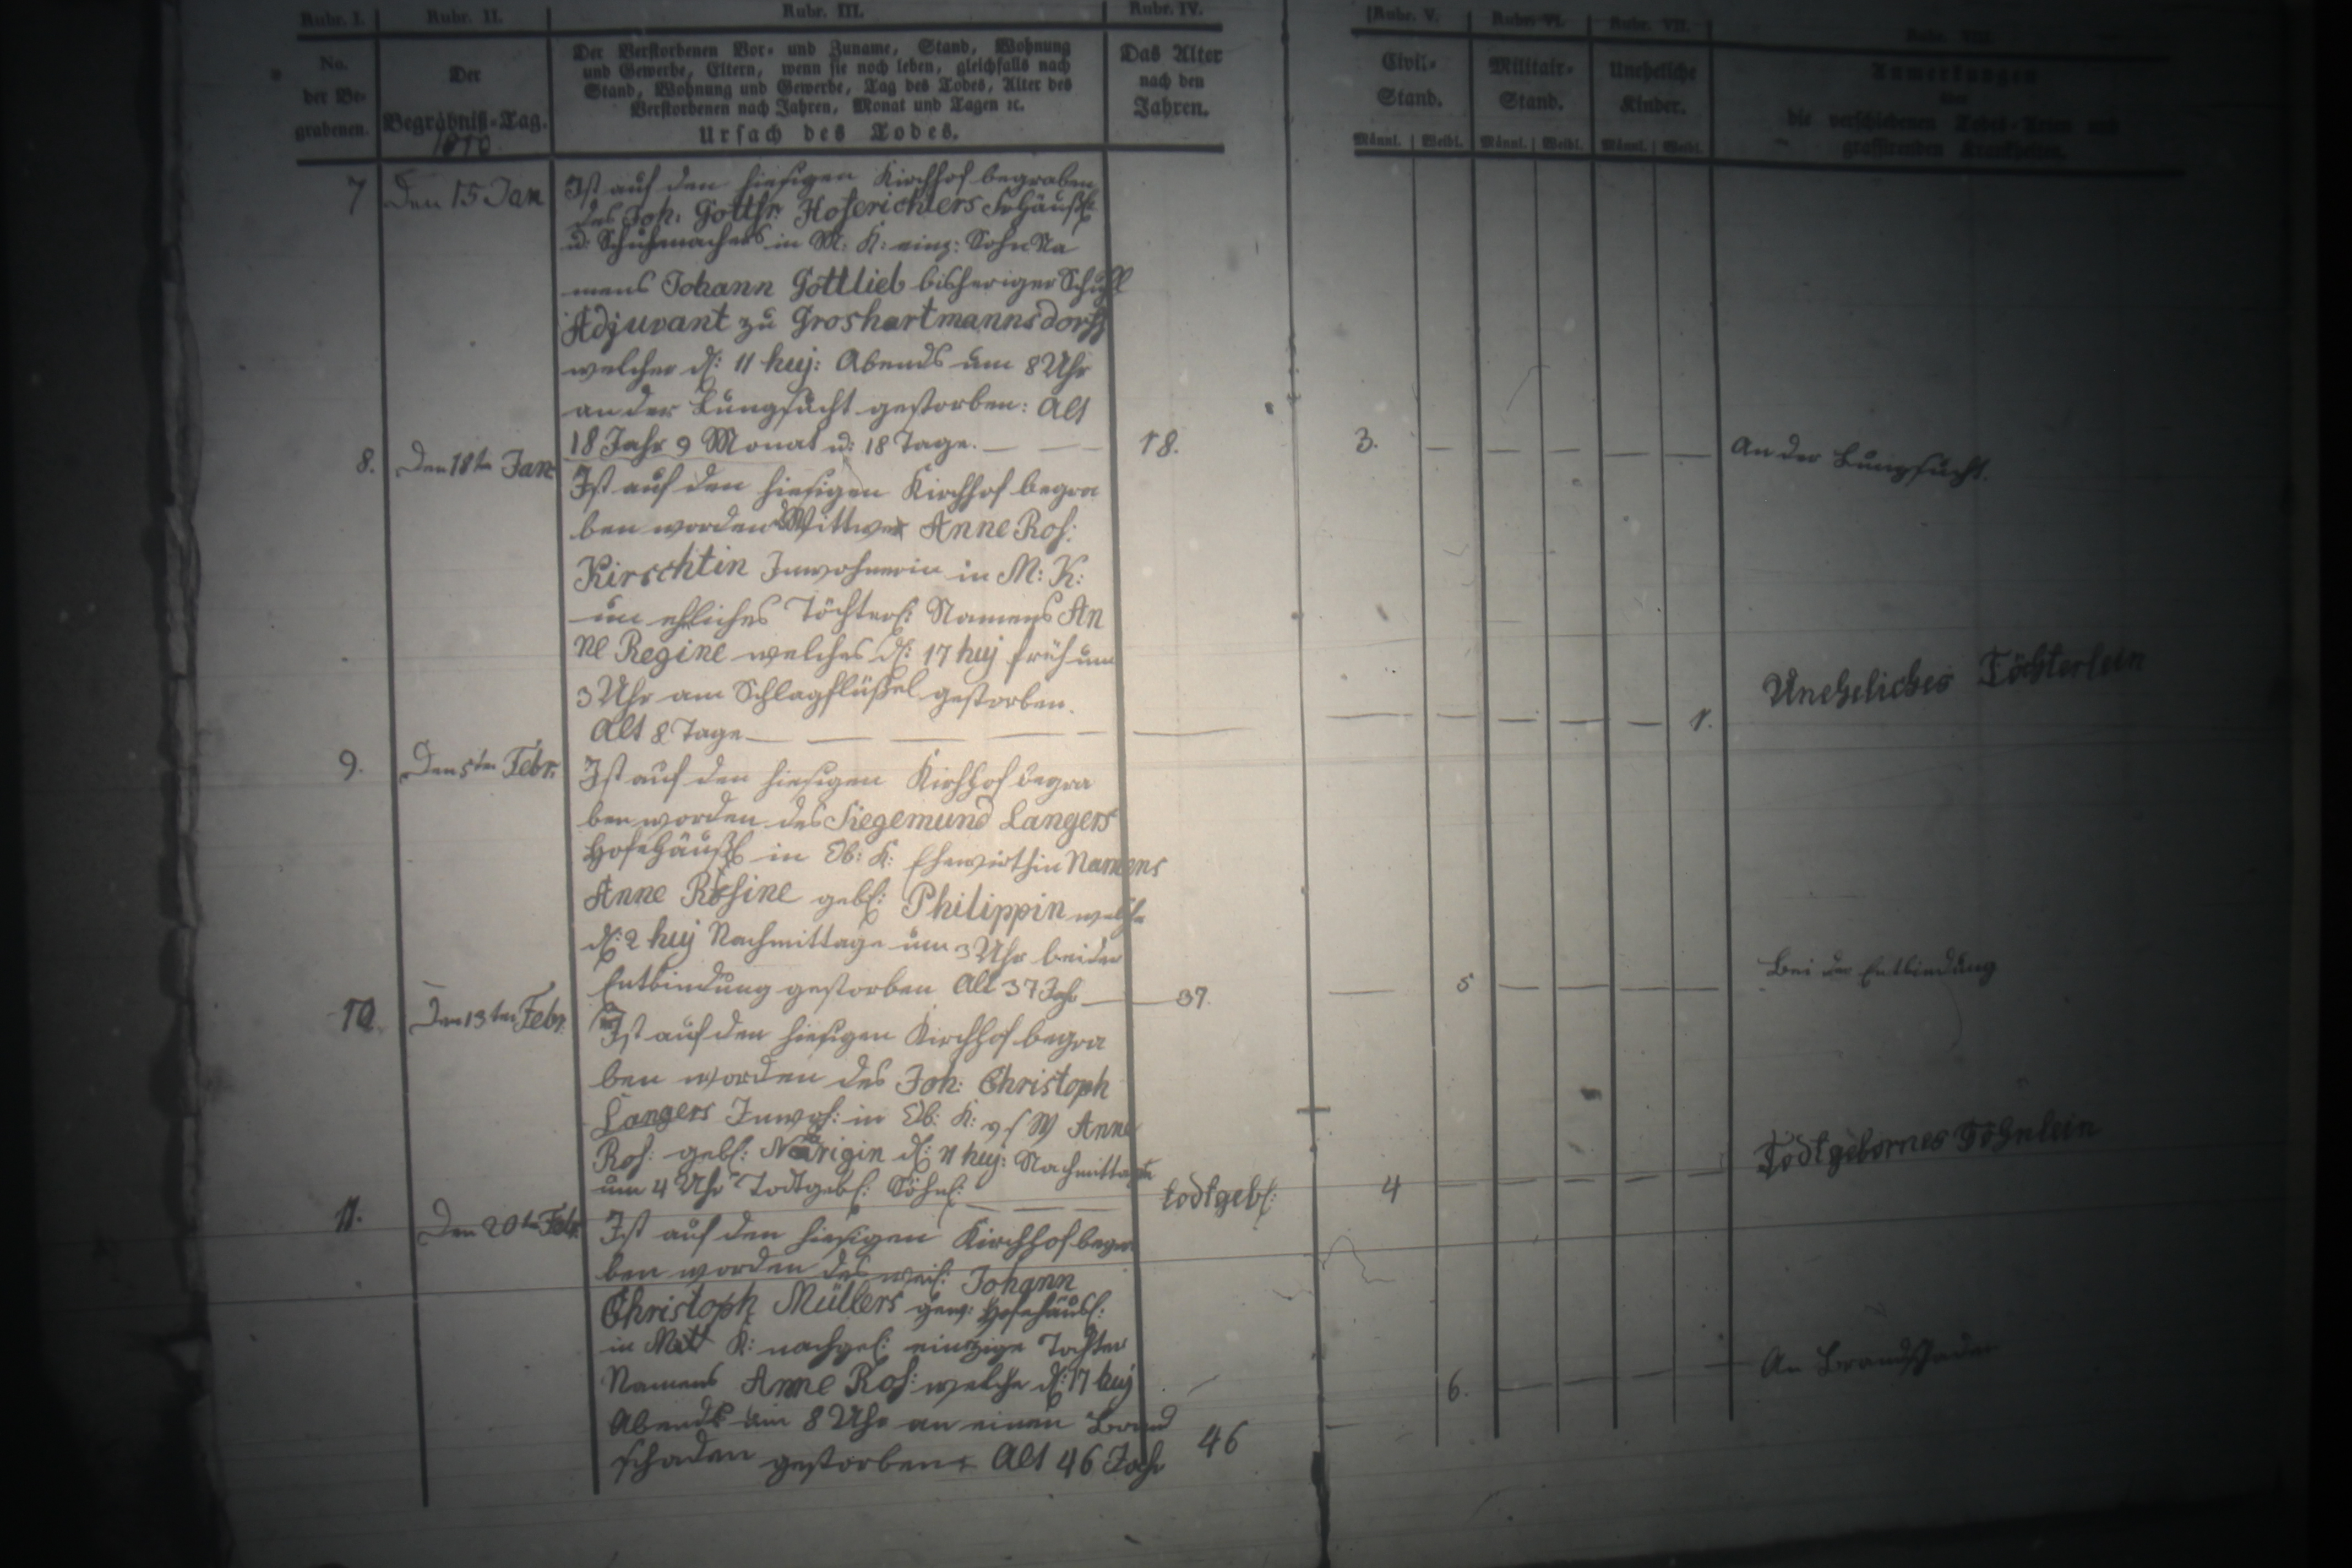 Rubr. I. Rubr. II. Rubr. III. Rubr. IV. Rubr. V. Rubr. VI. Rubr. VII. Rubr. VIII.
No. der Be- grabenen.
Der Begräbniß-Tag.
Der Verstorbenen Vor- und Zuname, Stand, Wohnung
und Gewerbe, Eltern, wenn sie noch leben, gleichfalls nach
Stand, Wohnung und Gewerbe, Tag des Todes, Alter des
Verstorbenen nach Jahren, Monat und Tagen ꝛc.
Ursach des Todes.
Das Alter nach den Jahren.
Civil- Stand.
Militair- Stand.
Uneheliche Kinder.
Anmerkungen
über
die verschiedenen Todes-Arten und
grassirenden Krankheiten.
Männl. Weibl. Männl. Weibl. Männl. Weibl.
1810.
7 Den 15 Jan Ist auf den hiesigen Kirchhof begraben
des Joh: Gottfr. Hoferichters
u: Schuhmachers in M: K: einz: Sohn Na
mens Johann Gottlieb bisheriger Schul
Adjuvant zu Groshartmannsdorff
welcher d: 11 huj: Abends um 8 Uhr
an der Lungsucht gestorben: Alt
18 Jahr 9 Monat u: 18 Tage. — 18. 3. — An der Lungsucht.
8. Den 18ten Jan Ist auf den hiesigen Kirchhof begra
ben worden Wittwe Anne Ros:
Kirschtin Inwohnerin in M: K:
un ehliches Töchterl: Namens An
ne Regine welches d: 17 huj früh um
3 Uhr am Schlagflüßel gestorben.
Alt 8 Tage — 1. Uneheliches Töchterlein
9. Den 5ten Febr. Ist auf den hiesigen Kirchhof begra
ben worden des Siegemund Langers
Hofehäußl in Ob: K: Ehewirthin Namens
Anne Rosine geb: Philippin welche
d: 2 huj Nachmittage um 3 Uhr bei der
Entbindung gestorben Alt 37 Jahr — 37. — 5 — Bei der Entbindung
10. Den 13ten Febr. Ist auf den hiesigen Kirchhof begra
ben worden des Joh: Christoph
Langers Inwoh: in Ob: K: Anne
Ros: geb: d: 11 huj: Nachmittage
um 4 Uhr Todtgeb: Söhnl: — todtgeb: 4 — Todtgebornes Söhnlein
11. Den 20ten Febr. Ist auf den hiesigen Kirchhof begra
ben worden des weil: Johann
Christoph Müllers gew: Hofehäusl:
in Mitt K: nachgel: einzige Tochter
Namens Anne Ros: welche d: 17 huj
Abends um 8 Uhr an einem Brand
schaden gestorben. Alt 46 Jahr 46 — 6. — An Brandschaden